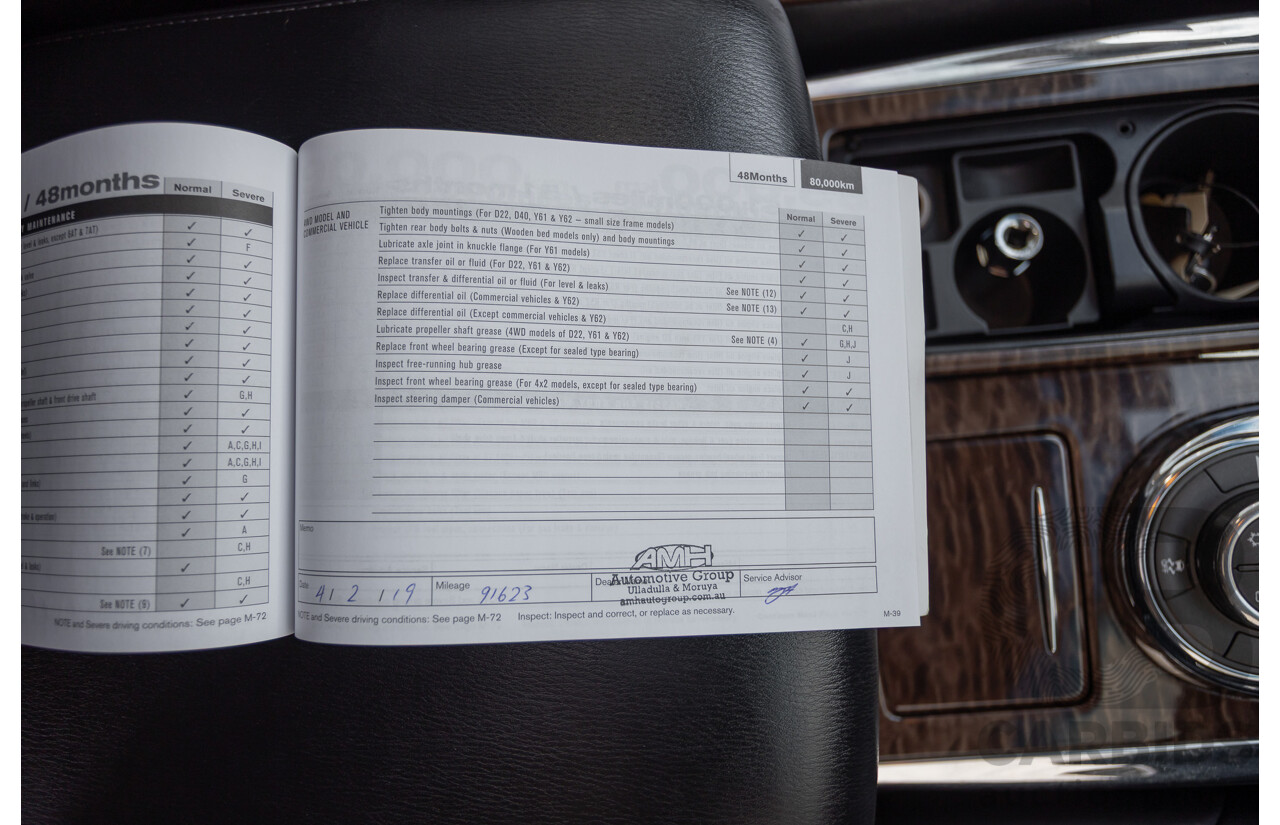 / 48months
Normal
Severe
MAINTENANCE
F
G,H
A,C,G,H,I
A,C,G,H,I
G
A
See NOTE (7)
C,H
C,H
See NOTE (9)
NOTE and Severe driving conditions: See page M-72
48Months
80,000km
Normal
Severe
4WD MODEL AND
COMMERCIAL VEHICLE
Tighten body mountings (For D22, D40, Y61 & Y62 – small size frame models) ✓ ✓
Tighten rear body bolts & nuts (Wooden bed models only) and body mountings ✓ ✓
Lubricate axle joint in knuckle flange (For Y61 models) ✓ ✓
Replace transfer oil or fluid (For D22, Y61 & Y62) ✓ ✓
Inspect transfer & differential oil or fluid (For level & leaks) See NOTE (12) ✓ ✓
Replace differential oil (Commercial vehicles & Y62) See NOTE (13) C,H
Replace differential oil (Except commercial vehicles & Y62)
Lubricate propeller shaft grease (4WD models of D22, Y61 & Y62) See NOTE (4) ✓ G,H,J
Replace front wheel bearing grease (Except for sealed type bearing) ✓ J
Inspect free-running hub grease ✓ J
Inspect front wheel bearing grease (For 4x2 models, except for sealed type bearing) ✓ ✓
Inspect steering damper (Commercial vehicles) ✓ ✓
Memo
AMH
Automotive Group
Ulladulla & Moruya
amhautogroup.com.au
Date 4 / 2 / 19
Mileage 91623
Service Advisor
NOTE and Severe driving conditions: See page M-72
Inspect: Inspect and correct, or replace as necessary.
M-39
CARBI